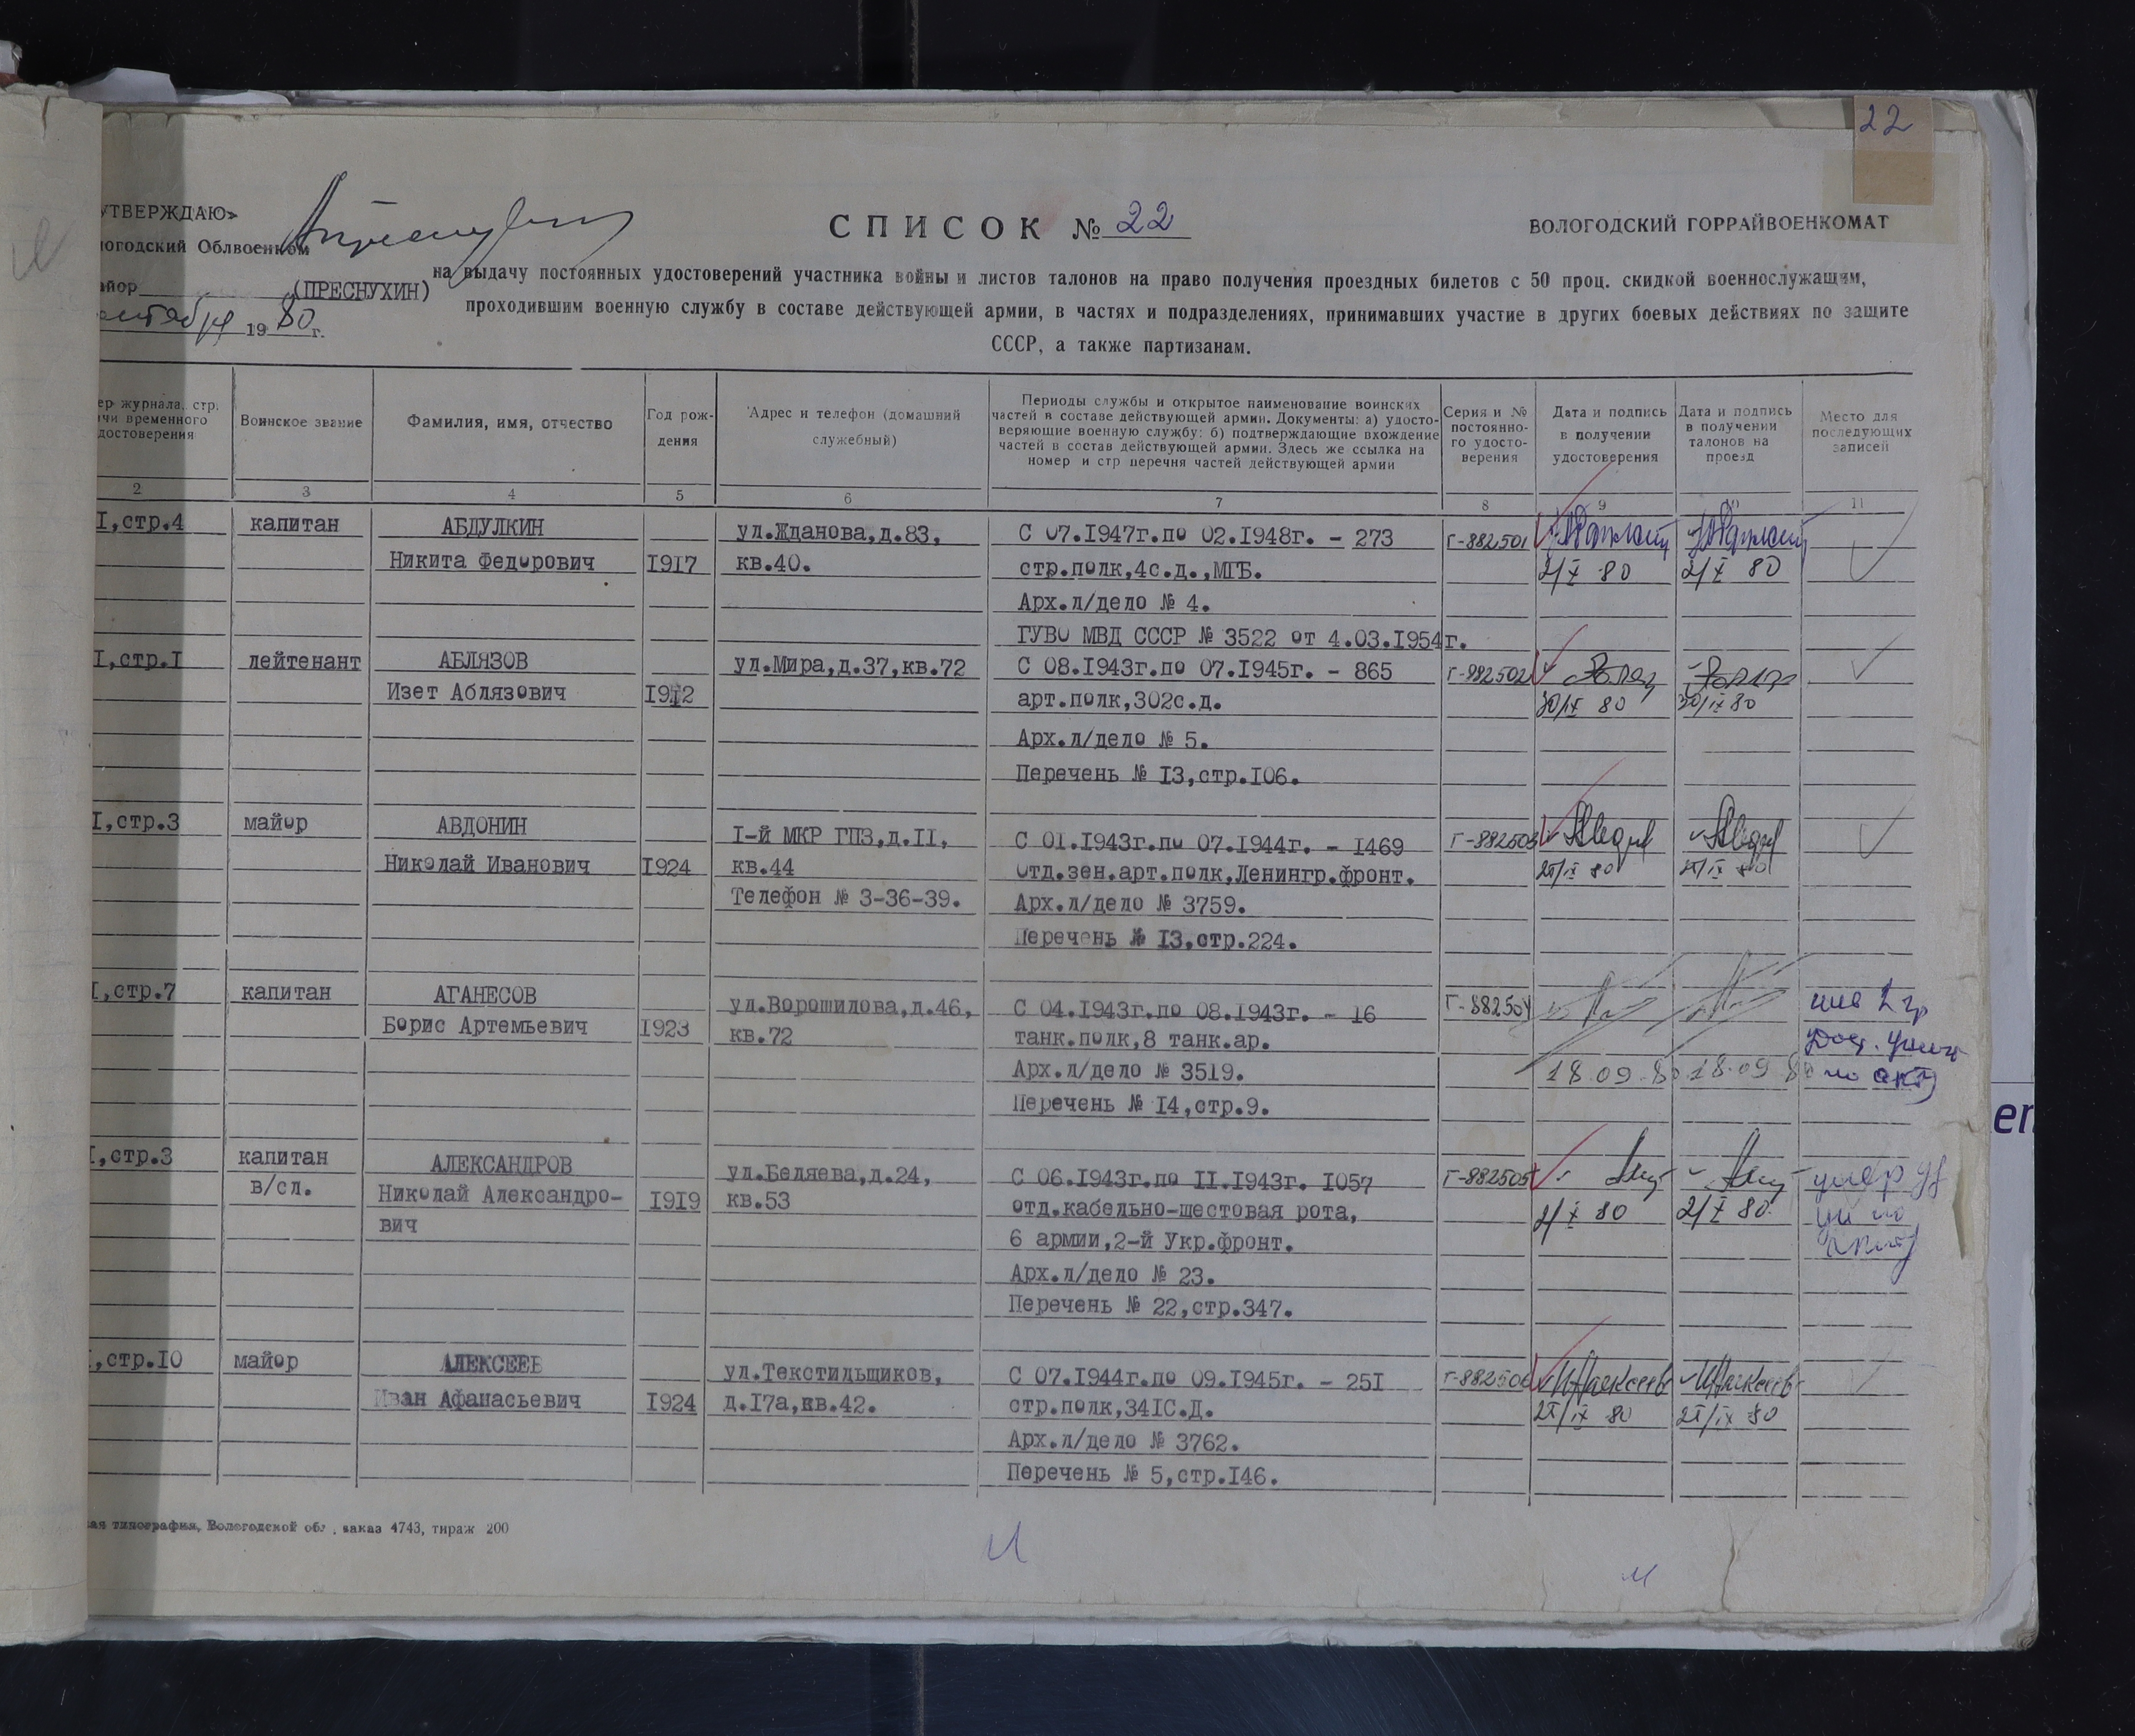 22
УТВЕРЖДАЮ»
логодский Облвоенком
айор (ПРЕСНУХИН)
сентября 1980 г.
СПИСОК № 22
ВОЛОГОДСКИЙ ГОРРАЙВОЕНКОМАТ
на выдачу постоянных удостоверений участника войны и листов талонов на право получения проездных билетов с 50 проц. скидкой военнослужащим,
проходившим военную службу в составе действующей армии, в частях и подразделениях, принимавших участие в других боевых действиях по защите
СССР, а также партизанам.
ер журнала, стр.
ачи временного
достоверения
Воинское звание
Фамилия, имя, отчество
Год рож-
дения
Адрес и телефон (домашний
служебный)
Периоды службы и открытое наименование воинских
частей в составе действующей армии. Документы: а) удосто-
веряющие военную службу; б) подтверждающие вхождение
частей в состав действующей армии. Здесь же ссылка на
номер и стр перечня частей действующей армии
Серия и №
постоянно-
го удосто-
верения
Дата и подпись
в получении
удостоверения
Дата и подпись
в получении
талонов на
проезд
Место для
последующих
записей
2 3 4 5 6 7 8 9 10 11
I,стр.4 капитан АБДУЛКИН ул.Жданова,д.83, С 07.1947г.по 02.1948г. - 273 Г-882501
Никита Федорович 1917 кв.40. стр.полк,4с.д.,МГБ. 2/X 80 2/X 80
Арх.л/дело № 4.
ГУВО МВД СССР № 3522 от 4.03.1954г.
I,стр.I лейтенант АБЛЯЗОВ ул.Мира,д.37,кв.72 С 08.1943г.по 07.1945г. - 865 Г-882502
Изет Аблязович 1912 арт.полк,302с.д. 30/IX 80 30/IX 80
Арх.л/дело № 5.
Перечень № 13,стр.106.
I,стр.3 майор АВДОНИН I-й МКР ГПЗ,д.II, С 01.1943г.по 07.1944г. - 1469 Г-882503
Николай Иванович 1924 кв.44 отд.зен.арт.полк,Ленингр.фронт. /IX 80 /IX 80
Телефон № 3-36-39. Арх.л/дело № 3759.
Перечень № 13,стр.224.
I,стр.7 капитан АГАНЕСОВ ул.Ворошилова,д.46, С 04.1943г.по 08.1943г. - 16 Г-882504
Борис Артемьевич 1923 кв.72 танк.полк,8 танк.ар.
Арх.л/дело № 3519. 18.09.80 18.09.80 по акту
Перечень № 14,стр.9.
I,стр.3 капитан АЛЕКСАНДРОВ ул.Беляева,д.24, С 06.1943г.по II.1943г. 1057 Г-882505 умер
в/сл. Николай Александро- 1919 кв.53 отд.кабельно-шестовая рота, 2/X 80 2/X 80
вич 6 армии,2-й Укр.фронт.
Арх.л/дело № 23.
Перечень № 22,стр.347.
I,стр.10 майор АЛЕКСЕЕВ ул.Текстильщиков, С 07.1944г.по 09.1945г. - 251 Г-882506 ИАлексеев ИАлексеев
Иван Афанасьевич 1924 д.17а,кв.42. стр.полк,341С.Д. /IX 80 /IX 80
Арх.л/дело № 3762.
Перечень № 5,стр.146.
ая типография, Вологодской обл., заказ 4743, тираж 200